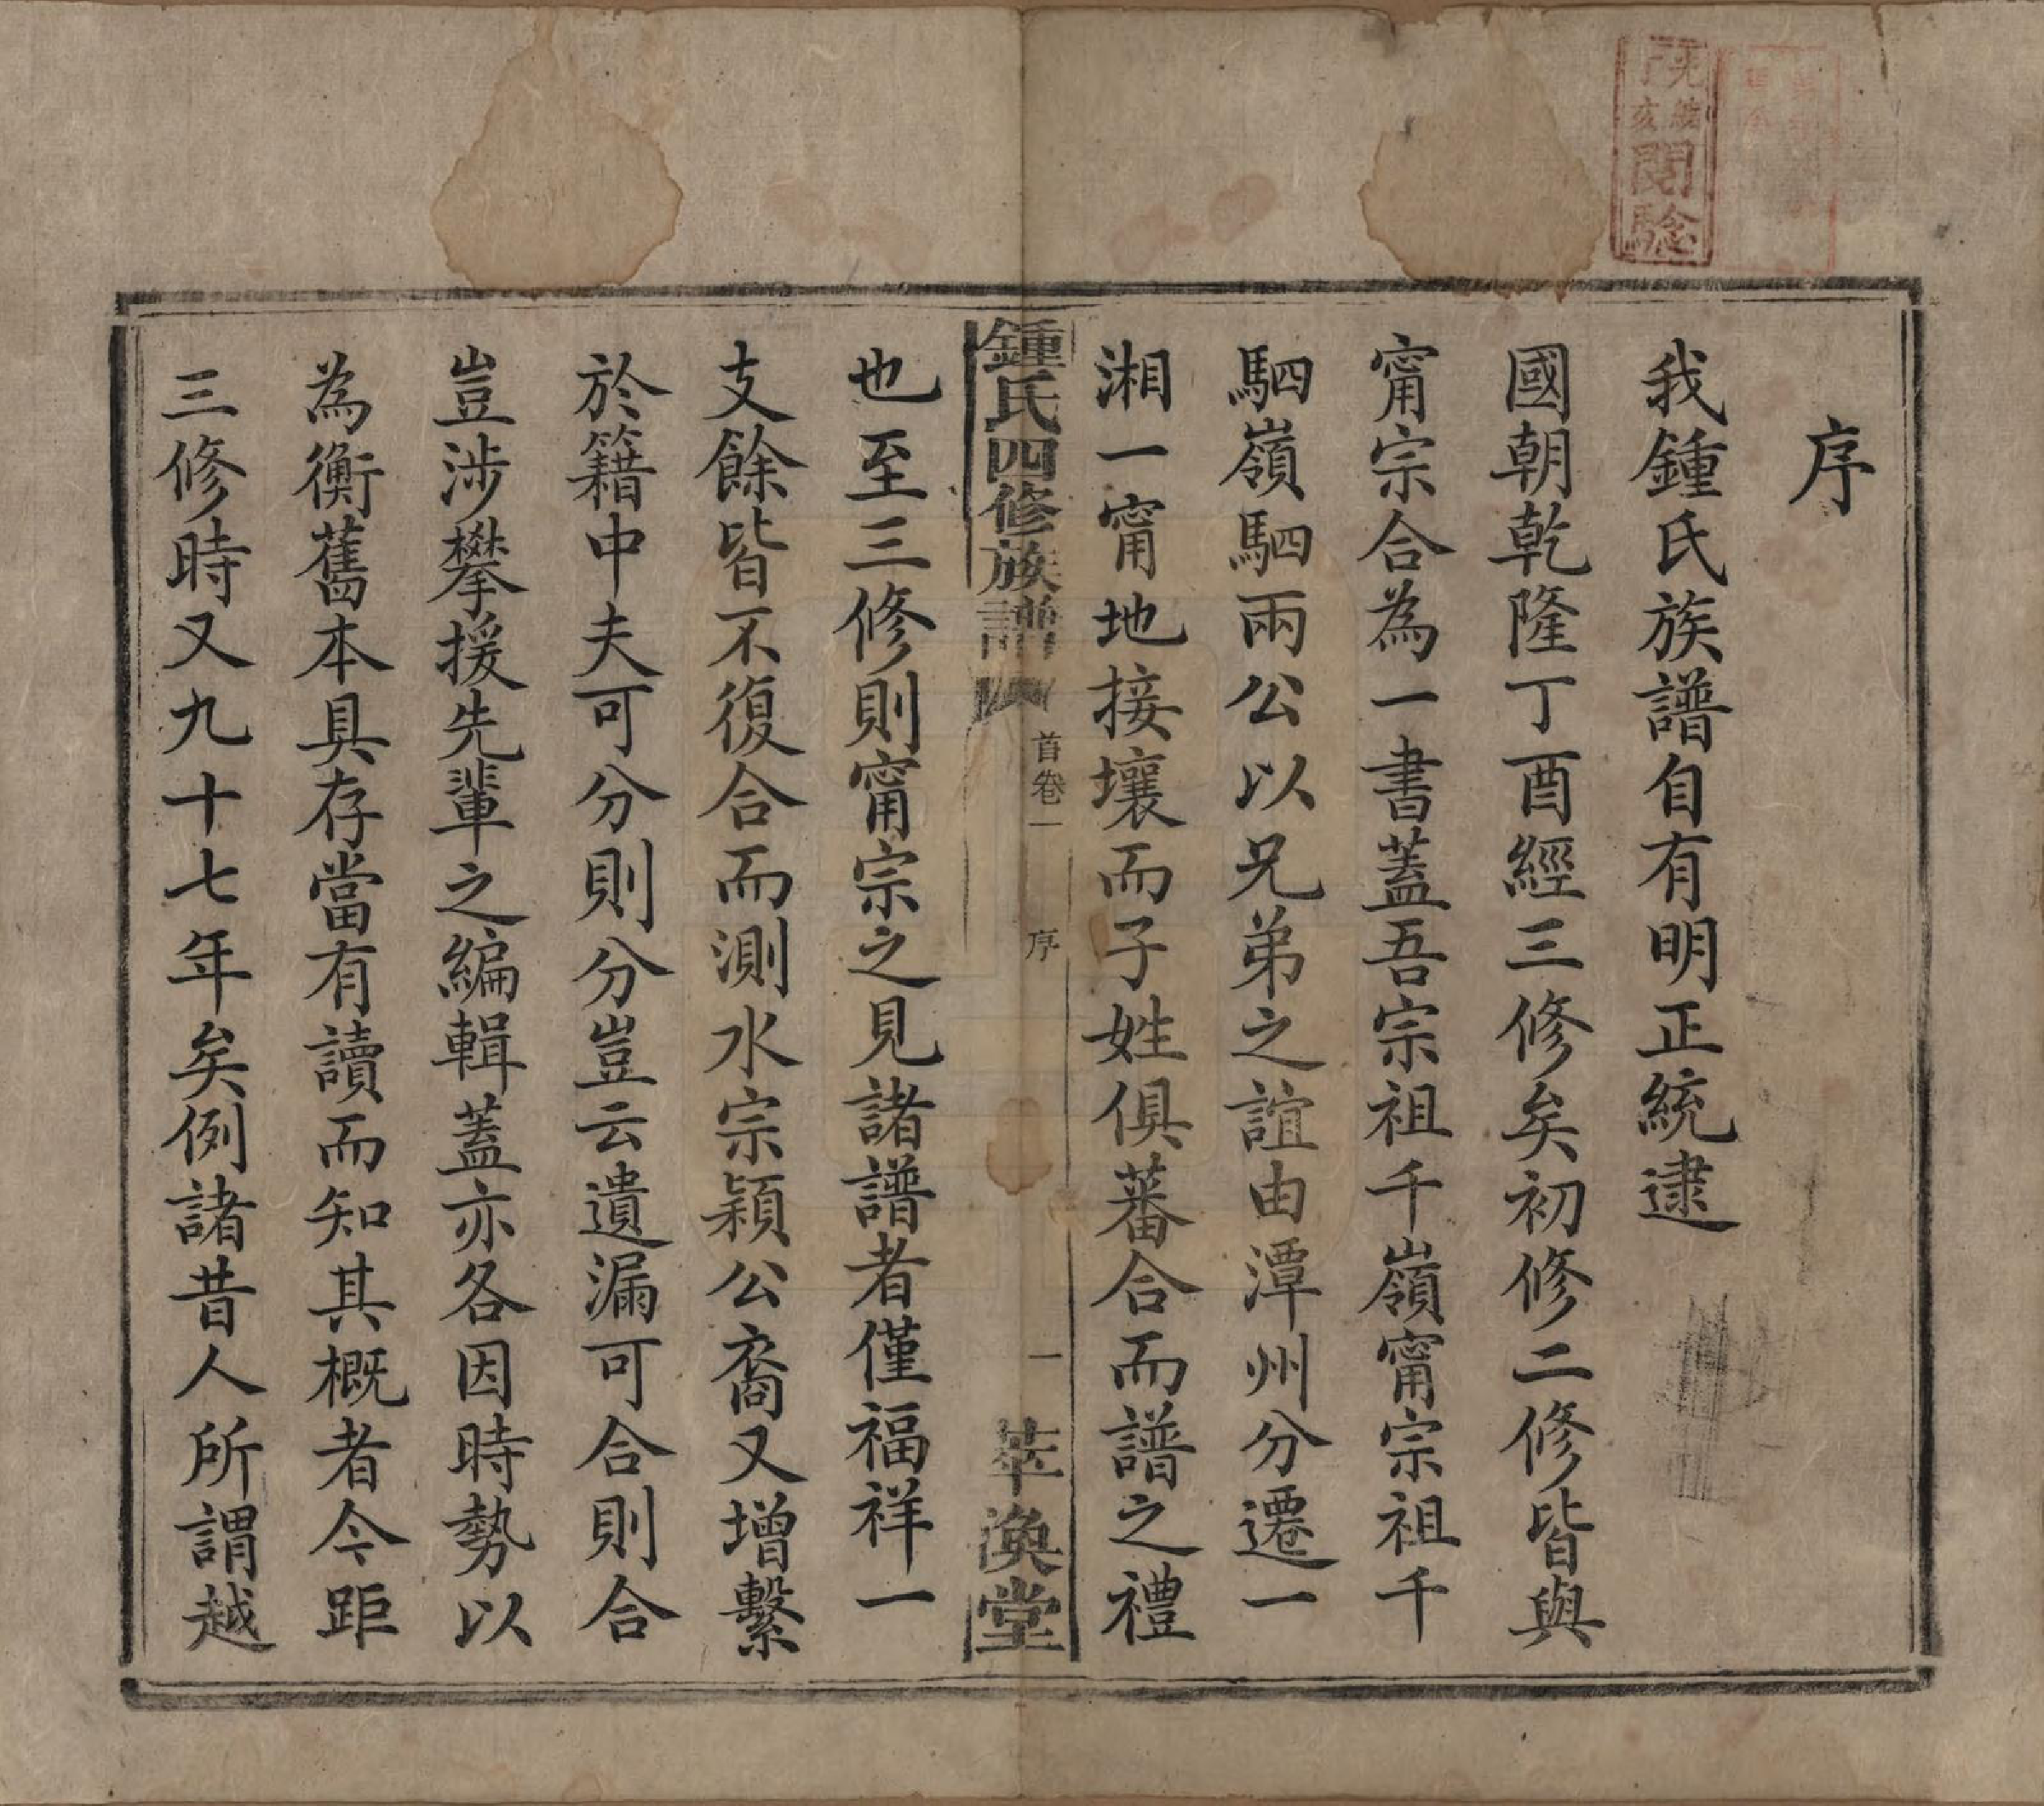 序
我鍾氏族譜自有明正統逮
國朝乾隆丁酉經三修矣初修二修皆與
甯宗合為一書蓋吾宗祖千嶺甯宗祖千
駟嶺駟兩公以兄弟之誼由潭州分遷一
湘一甯地接壤而子姓俱蕃合而譜之禮
鍾氏四修族譜
首卷一
序
一
萃渙堂
也至三修則甯宗之見諸譜者僅福祥一
支餘皆不復合而測水宗穎公裔又增繫
於籍中夫可分則分豈云遺漏可合則合
豈涉攀援先輩之編輯蓋亦各因時勢以
為衡舊本具存當有讀而知其概者今距
三修時又九十七年矣例諸昔人所謂越
光緒
丁亥
閱
驗